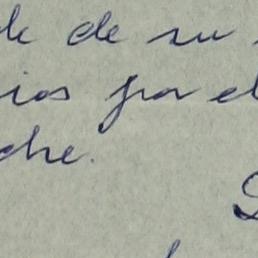 de de su
ios por el
che.